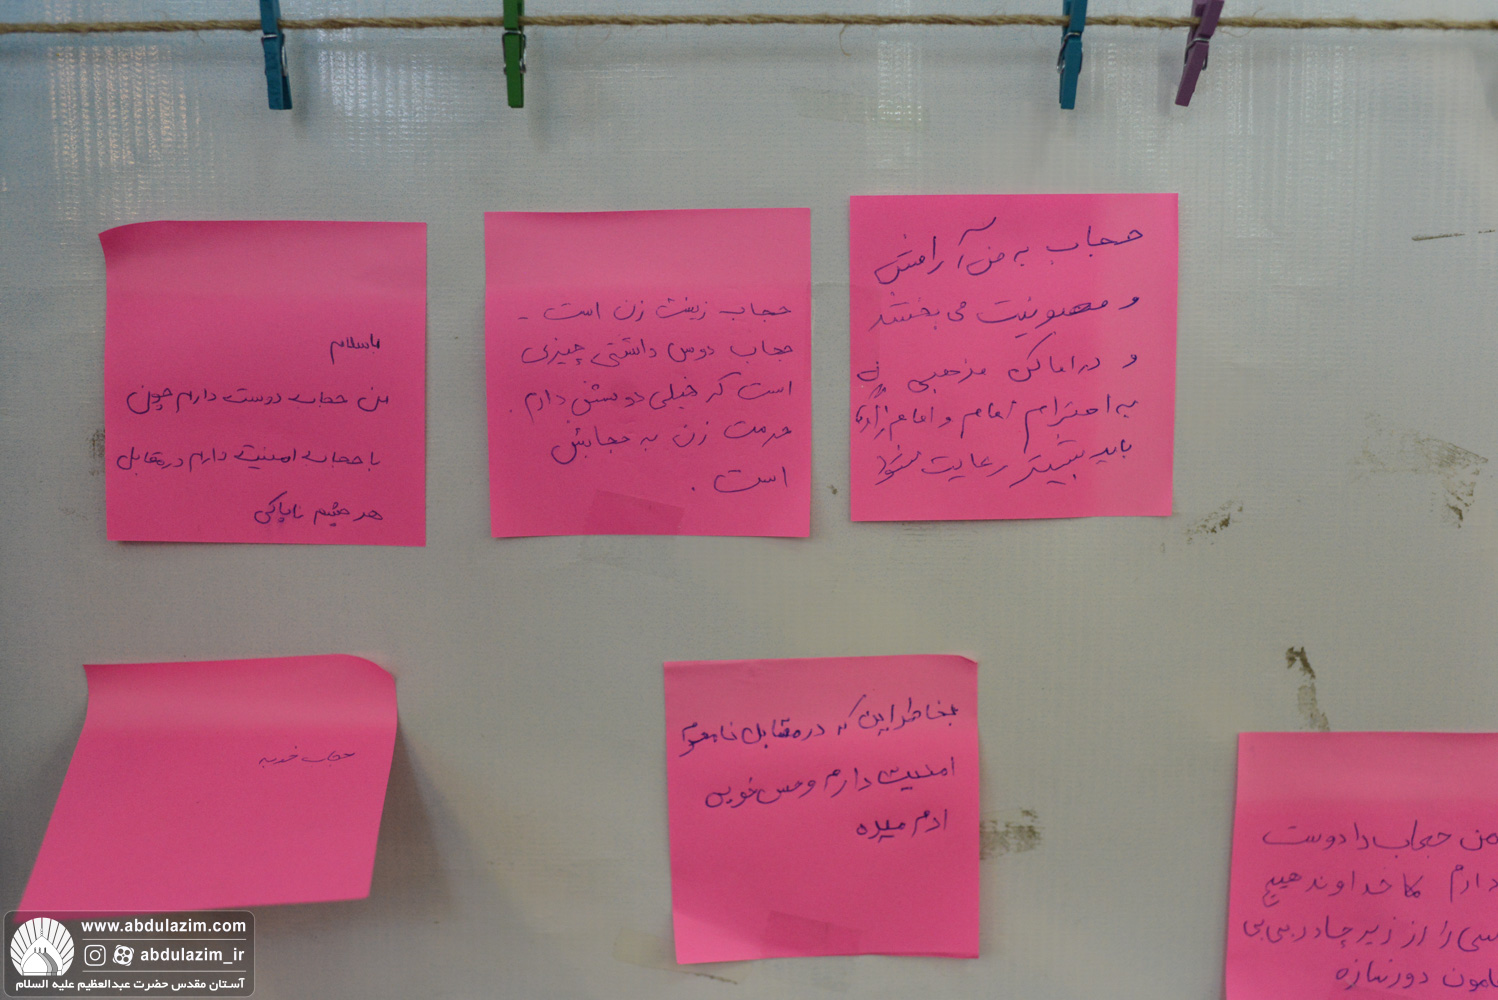 باسلام
من حجاب دوست دارم چون
با حجاب امنیت دارم در مقابل
هر چشم ناپاکی
حجاب زینت زن است -
حجاب دوس داشتنی چیزی
است که خیلی دوسش دارم.
حرمت زن به حجابش
است.
حجاب به من آرامش
و مصونیت می بخشد
و در اماکن مذهبی
به احترام امام و امام زاده
باید بیشتر رعایت شود
حجاب خوبه
بخاطر این که در مقابل نامحرم
امنیت دارم و حس خوبی
ادم میده
من حجاب را دوست
دارم خداوند هیچ
را از زیر چادر بی بی
دور نسازه
www.abdulazim.com
abdulazim_ir
آستان مقدس حضرت عبدالعظیم علیه السلام